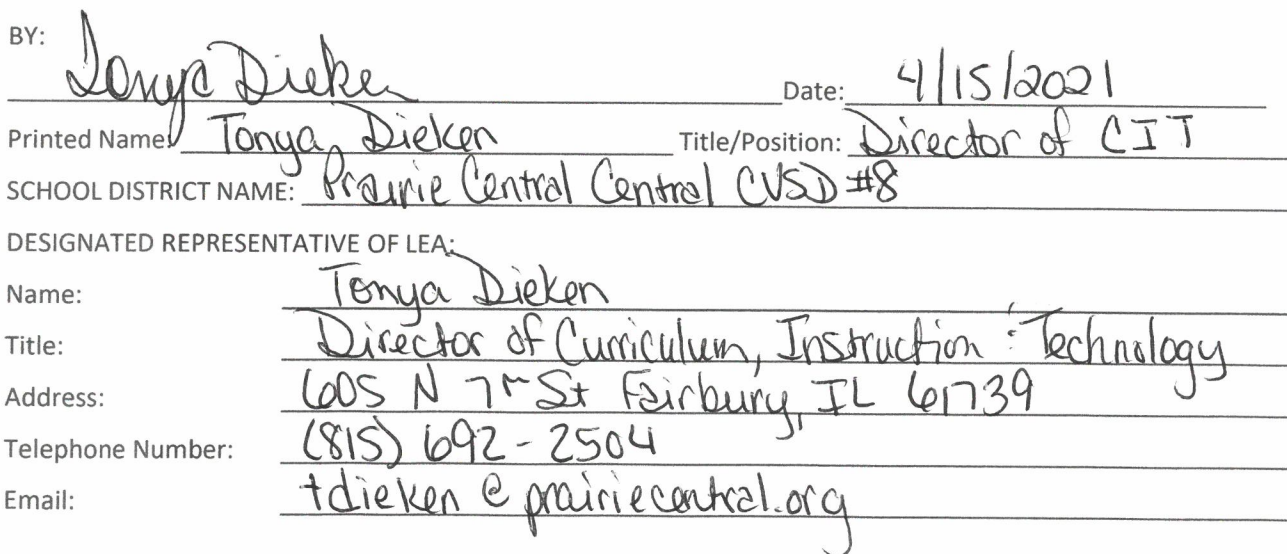 BY: Tonya Dieken Date: 4/15/2021
Printed Name: Tonya Dieken Title/Position: Director of CIT
SCHOOL DISTRICT NAME: Prairie Central Central CUSD #8
DESIGNATED REPRESENTATIVE OF LEA:
Name: Tonya Dieken
Title: Director of Curriculum, Instruction : Technology
Address: 605 N 7th St Fairbury, IL 61739
Telephone Number: (815) 692-2504
Email: tdieken@prairiecentral.org